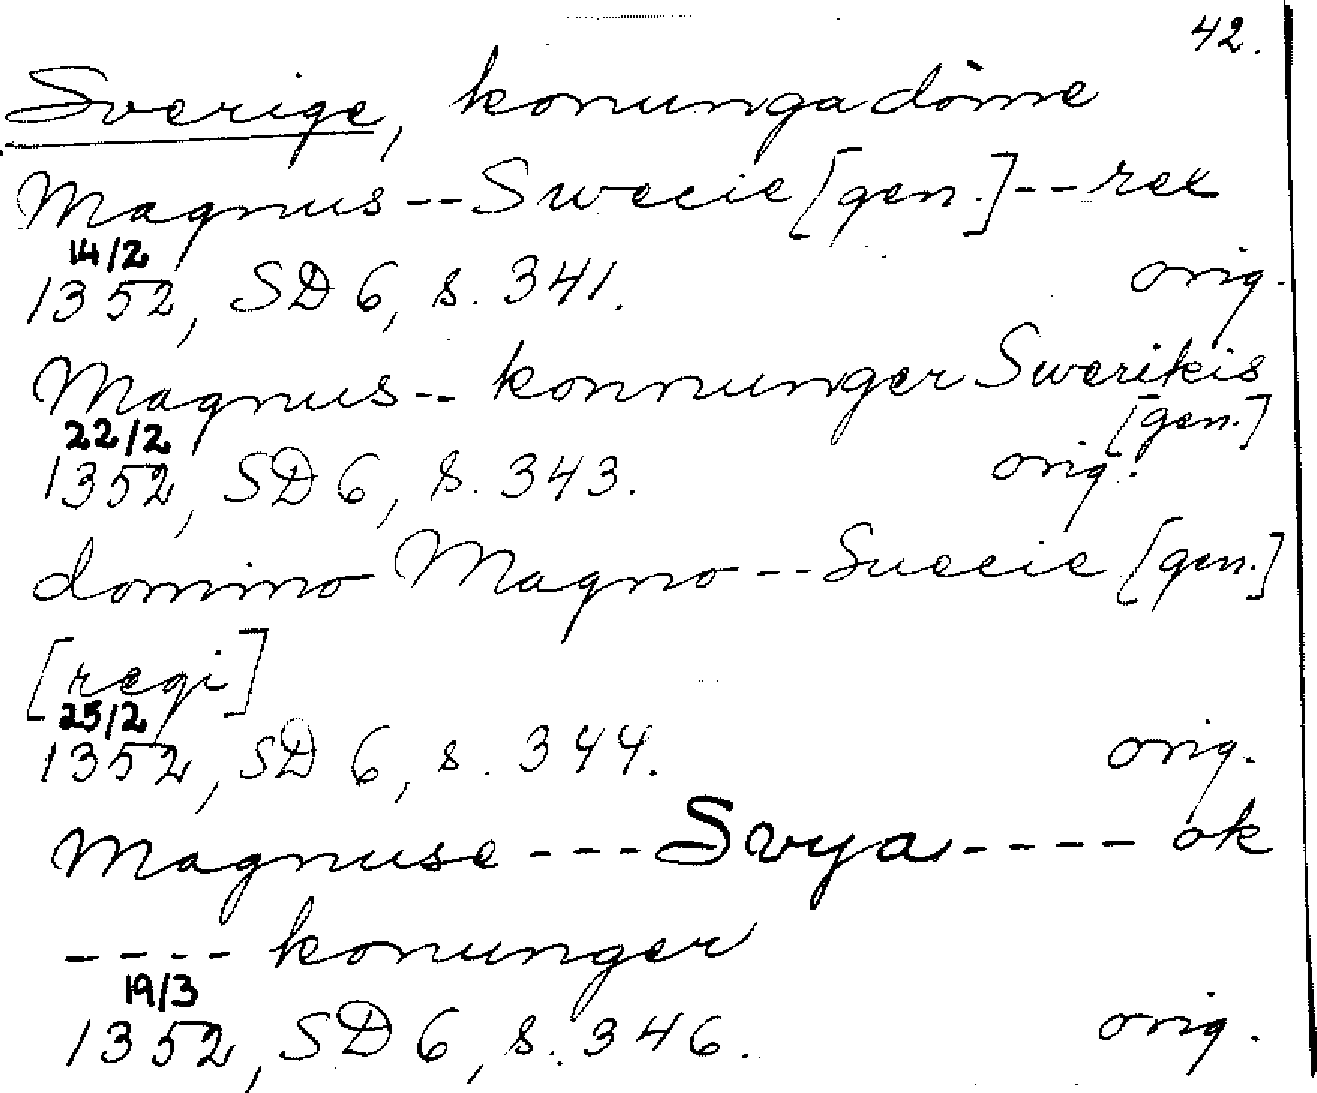 42.
Sverige, konungadöme
Magnus--Swecie [gen.]--rex
14/2
1352, SD 6, s. 341. orig.
Magnus-- konnunger Swerikis
[gen.]
22/2
1352, SD 6, s. 343. orig.
domino Magno--Suecie [gen.]
[regi]
25/2
1352, SD 6, s. 344. orig.
Magnuse---Svya----ok
---- konunger
19/3
1352, SD 6, s. 346. orig.